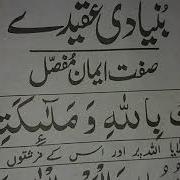 بُنیادی عقیدے
صفت ایمان مُفصّل
بِاللّٰهِ وَ مَلٰٓئِكَتِ
لایا اللہ پر اور اس کے فرشتوں